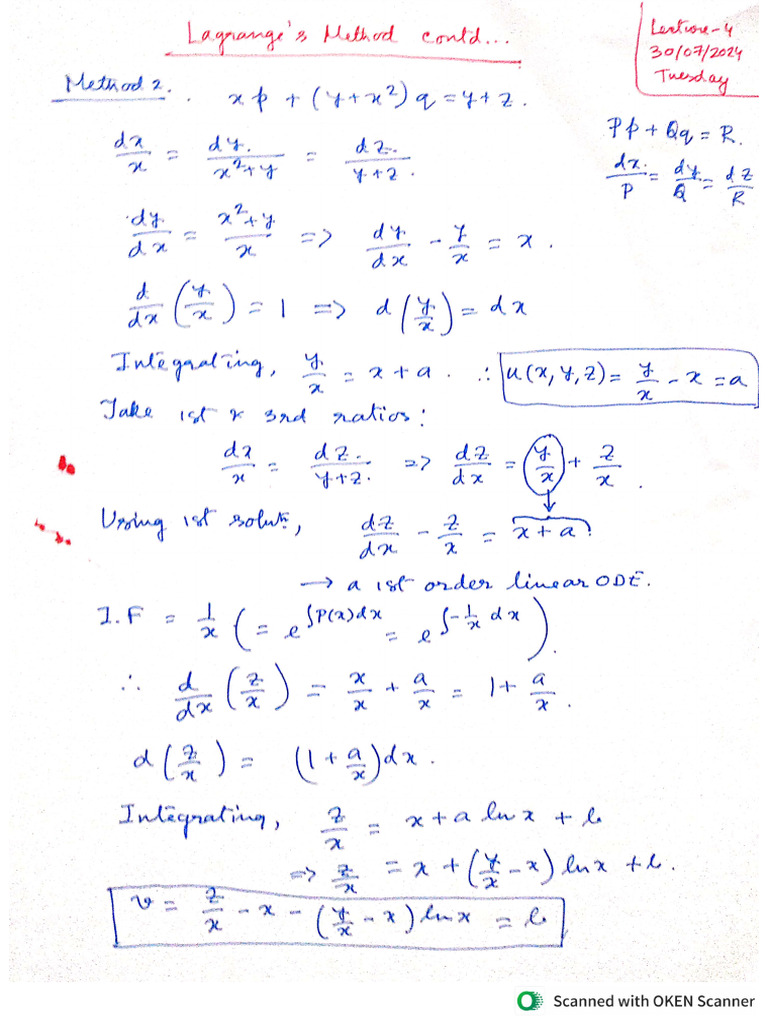 Lagrange's Method contd...
Lecture-4
30/07/2024
Tuesday
Method 2. xp + (y+x²)q = y+z.
Pp + Qq = R.
dx/x = dy/(x²+y) = dz/(y+z).
dx/P = dy/Q = dz/R
dy/dx = (x²+y)/x => dy/dx - y/x = x.
d/dx (y/x) = 1 => d(y/x) = dx
Integrating, y/x = x+a. ∴ u(x,y,z) = y/x - x = a
Take 1st & 3rd ratios:
dx/x = dz/(y+z). => dz/dx = y/x + z/x.
Using 1st solutn, dz/dx - z/x = x+a.
→ a 1st order linear ODE.
I.F = 1/x (= e^∫P(x)dx = e^∫-1/x dx).
∴ d/dx (z/x) = x/x + a/x = 1 + a/x.
d(z/x) = (1 + a/x)dx.
Integrating, z/x = x + a ln x + b
=> z/x = x + (y/x - x) ln x + b.
v = z/x - x - (y/x - x) ln x = b
Scanned with OKEN Scanner